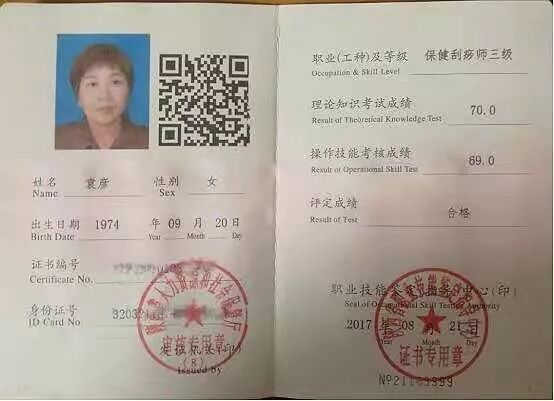 姓名 袁彦 性别 女
Name Sex
出生日期 1974 年 09 月 20 日
Birth Date Year Month Day
证书编号
Certificate No.
身份证号 32032
ID Card No.
发证机关(印)
Issued by
审核专用章
(8)
职业(工种)及等级 保健刮痧师三级
Occupation & Skill Level
理论知识考试成绩 70.0
Result of Theoretical Knowledge Test
操作技能考核成绩 69.0
Result of Operational Skill Test
评定成绩 合格
Result of Test
职业技能鉴定指导中心(印)
Seal of Occupational Skill Testing Authority
2017 年 08 月 21 日
证书专用章